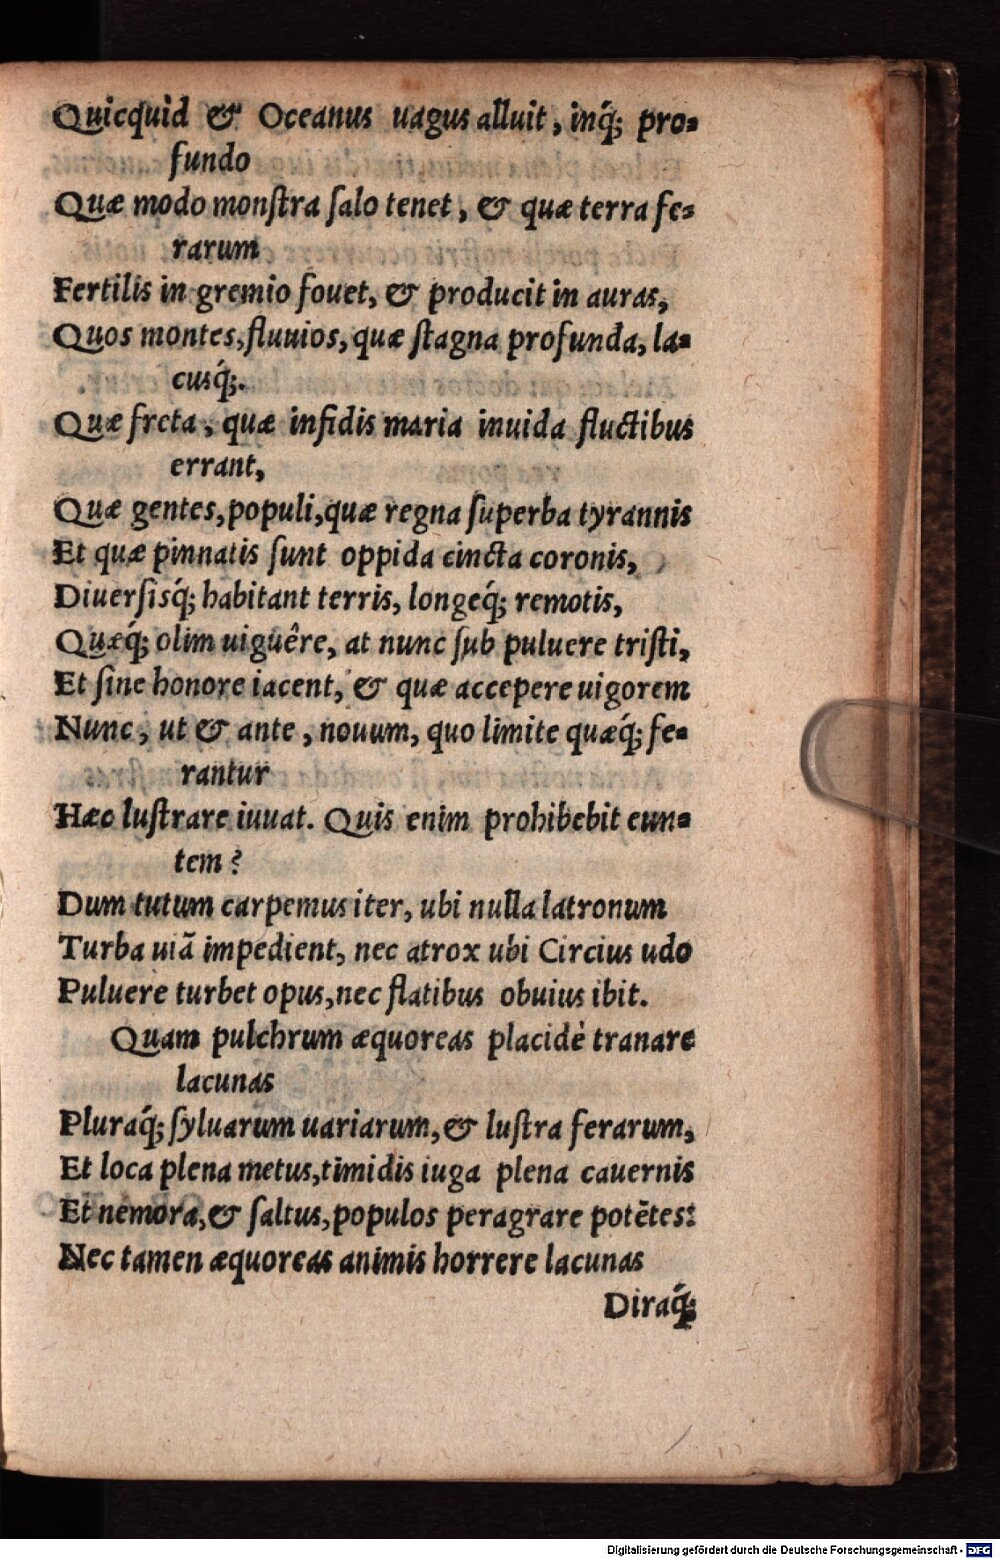 Quicquid & Oceanus uagus alluit, inq́; pro-
fundo
Quæ modo monſtra ſalo tenet, & quæ terra fe-
rarum
Fertilis in gremio fouet, & producit in auras,
Quos montes, fluuios, quæ ſtagna profunda, la-
cusq́;.
Quæ freta, quæ infidis maria inuida fluctibus
errant,
Quæ gentes, populi, quæ regna ſuperba tyrannis
Et quæ pinnatis ſunt oppida cincta coronis,
Diuerſisq́; habitant terris, longeq́; remotis,
Quæq́; olim uiguêre, at nunc ſub puluere triſti,
Et ſine honore iacent, & quæ accepere uigorem
Nunc, ut & ante, nouum, quo limite quæq́; fe-
rantur
Hæc luſtrare iuuat. Quis enim prohibebit eun-
tem?
Dum tutum carpemus iter, ubi nulla latronum
Turba uiã impedient, nec atrox ubi Circius udo
Puluere turbet opus, nec flatibus obuius ibit.
Quam pulchrum æquoreas placidè tranare
lacunas
Pluraq́; ſyluarum uariarum, & luſtra ferarum,
Et loca plena metus, timidis iuga plena cauernis
Et nemora, & ſaltus, populos peragrare potẽtes:
Nec tamen æquoreas animis horrere lacunas
Diraq́;
Digitalisierung gefördert durch die Deutsche Forschungsgemeinschaft - DFG